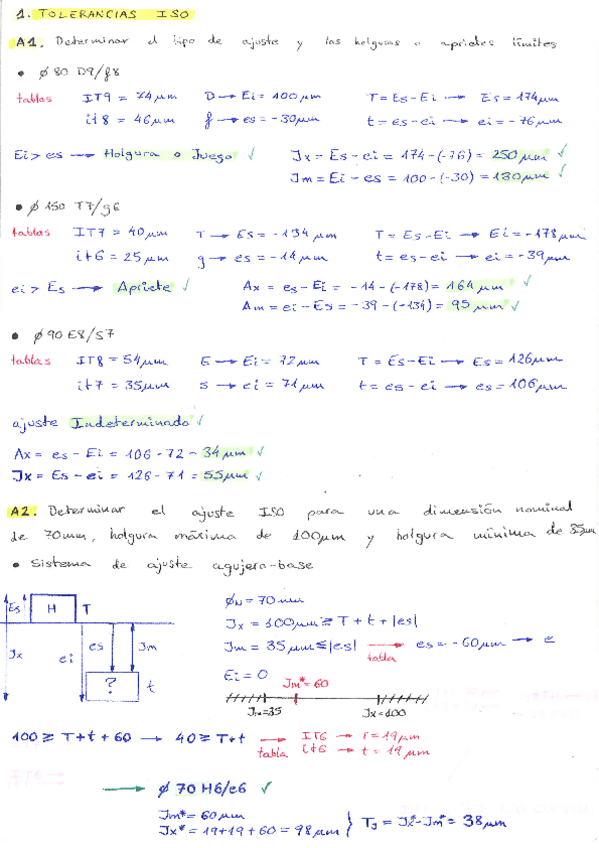 1. TOLERANCIAS ISO
A1. Determinar el tipo de ajuste y las holguras o aprietes límites
• ϕ 80 D9/f8
tablas IT9 = 74μm D → Ei = 100μm T = Es - Ei → Es = 174μm
it8 = 46μm f → es = -30μm t = es - ei → ei = -76μm
Ei > es → Holgura o Juego ✓ Jx = Es - ei = 174 - (-76) = 250μm ✓
Jm = Ei - es = 100 - (-30) = 130μm ✓
• ϕ 150 T7/g6
tablas IT7 = 40μm T → Es = -134μm T = Es - Ei → Ei = -178μm
it6 = 25μm g → es = -14μm t = es - ei → ei = -39μm
ei > Es → Apriete ✓ Ax = es - Ei = -14 - (-178) = 164μm ✓
Am = ei - Es = -39 - (-134) = 95μm ✓
• ϕ 90 E8/s7
tablas IT8 = 54μm E → Ei = 72μm T = Es - Ei → Es = 126μm
it7 = 35μm s → ei = 71μm t = es - ei → es = 106μm
ajuste Indeterminado ✓
Ax = es - Ei = 106 - 72 = 34μm ✓
Jx = Es - ei = 126 - 71 = 55μm ✓
A2. Determinar el ajuste ISO para una dimensión nominal
de 70mm, holgura máxima de 100μm y holgura mínima de 35μm
• Sistema de ajuste agujero-base
ϕN = 70mm
Es H T
Jx = 100μm ≥ T + t + |es|
Jx ei es Jm
Jm = 35μm ≤ |es| → es = -60μm → e
tabla
? t
Ei = 0
Jm* = 60
Jm = 35 Jx = 100
100 ≥ T + t + 60 → 40 ≥ T + t → IT6 → T = 19μm
tabla it6 → t = 19μm
→ ϕ 70 H6/e6 ✓
Jm* = 60μm
Jx* = 19 + 19 + 60 = 98μm } TJ = Jx* - Jm* = 38μm